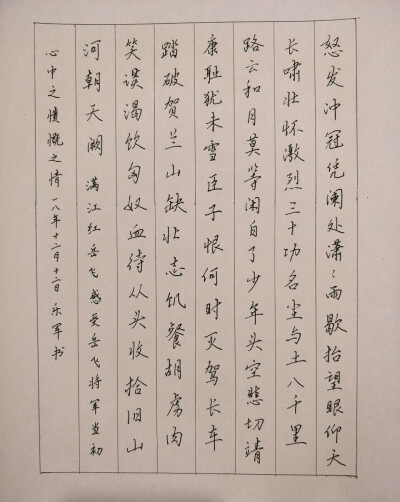 怒发冲冠凭阑处潇潇雨歇抬望眼仰天
长啸壮怀激烈三十功名尘与土八千里
路云和月莫等闲白了少年头空悲切靖
康耻犹未雪臣子恨何时灭驾长车
踏破贺兰山缺壮志饥餐胡虏肉
笑谈渴饮匈奴血待从头收拾旧山
河朝天阙 满江红岳飞感受岳飞将军当初
心中之愤慨之情 一八年十二月十二日 乐军书